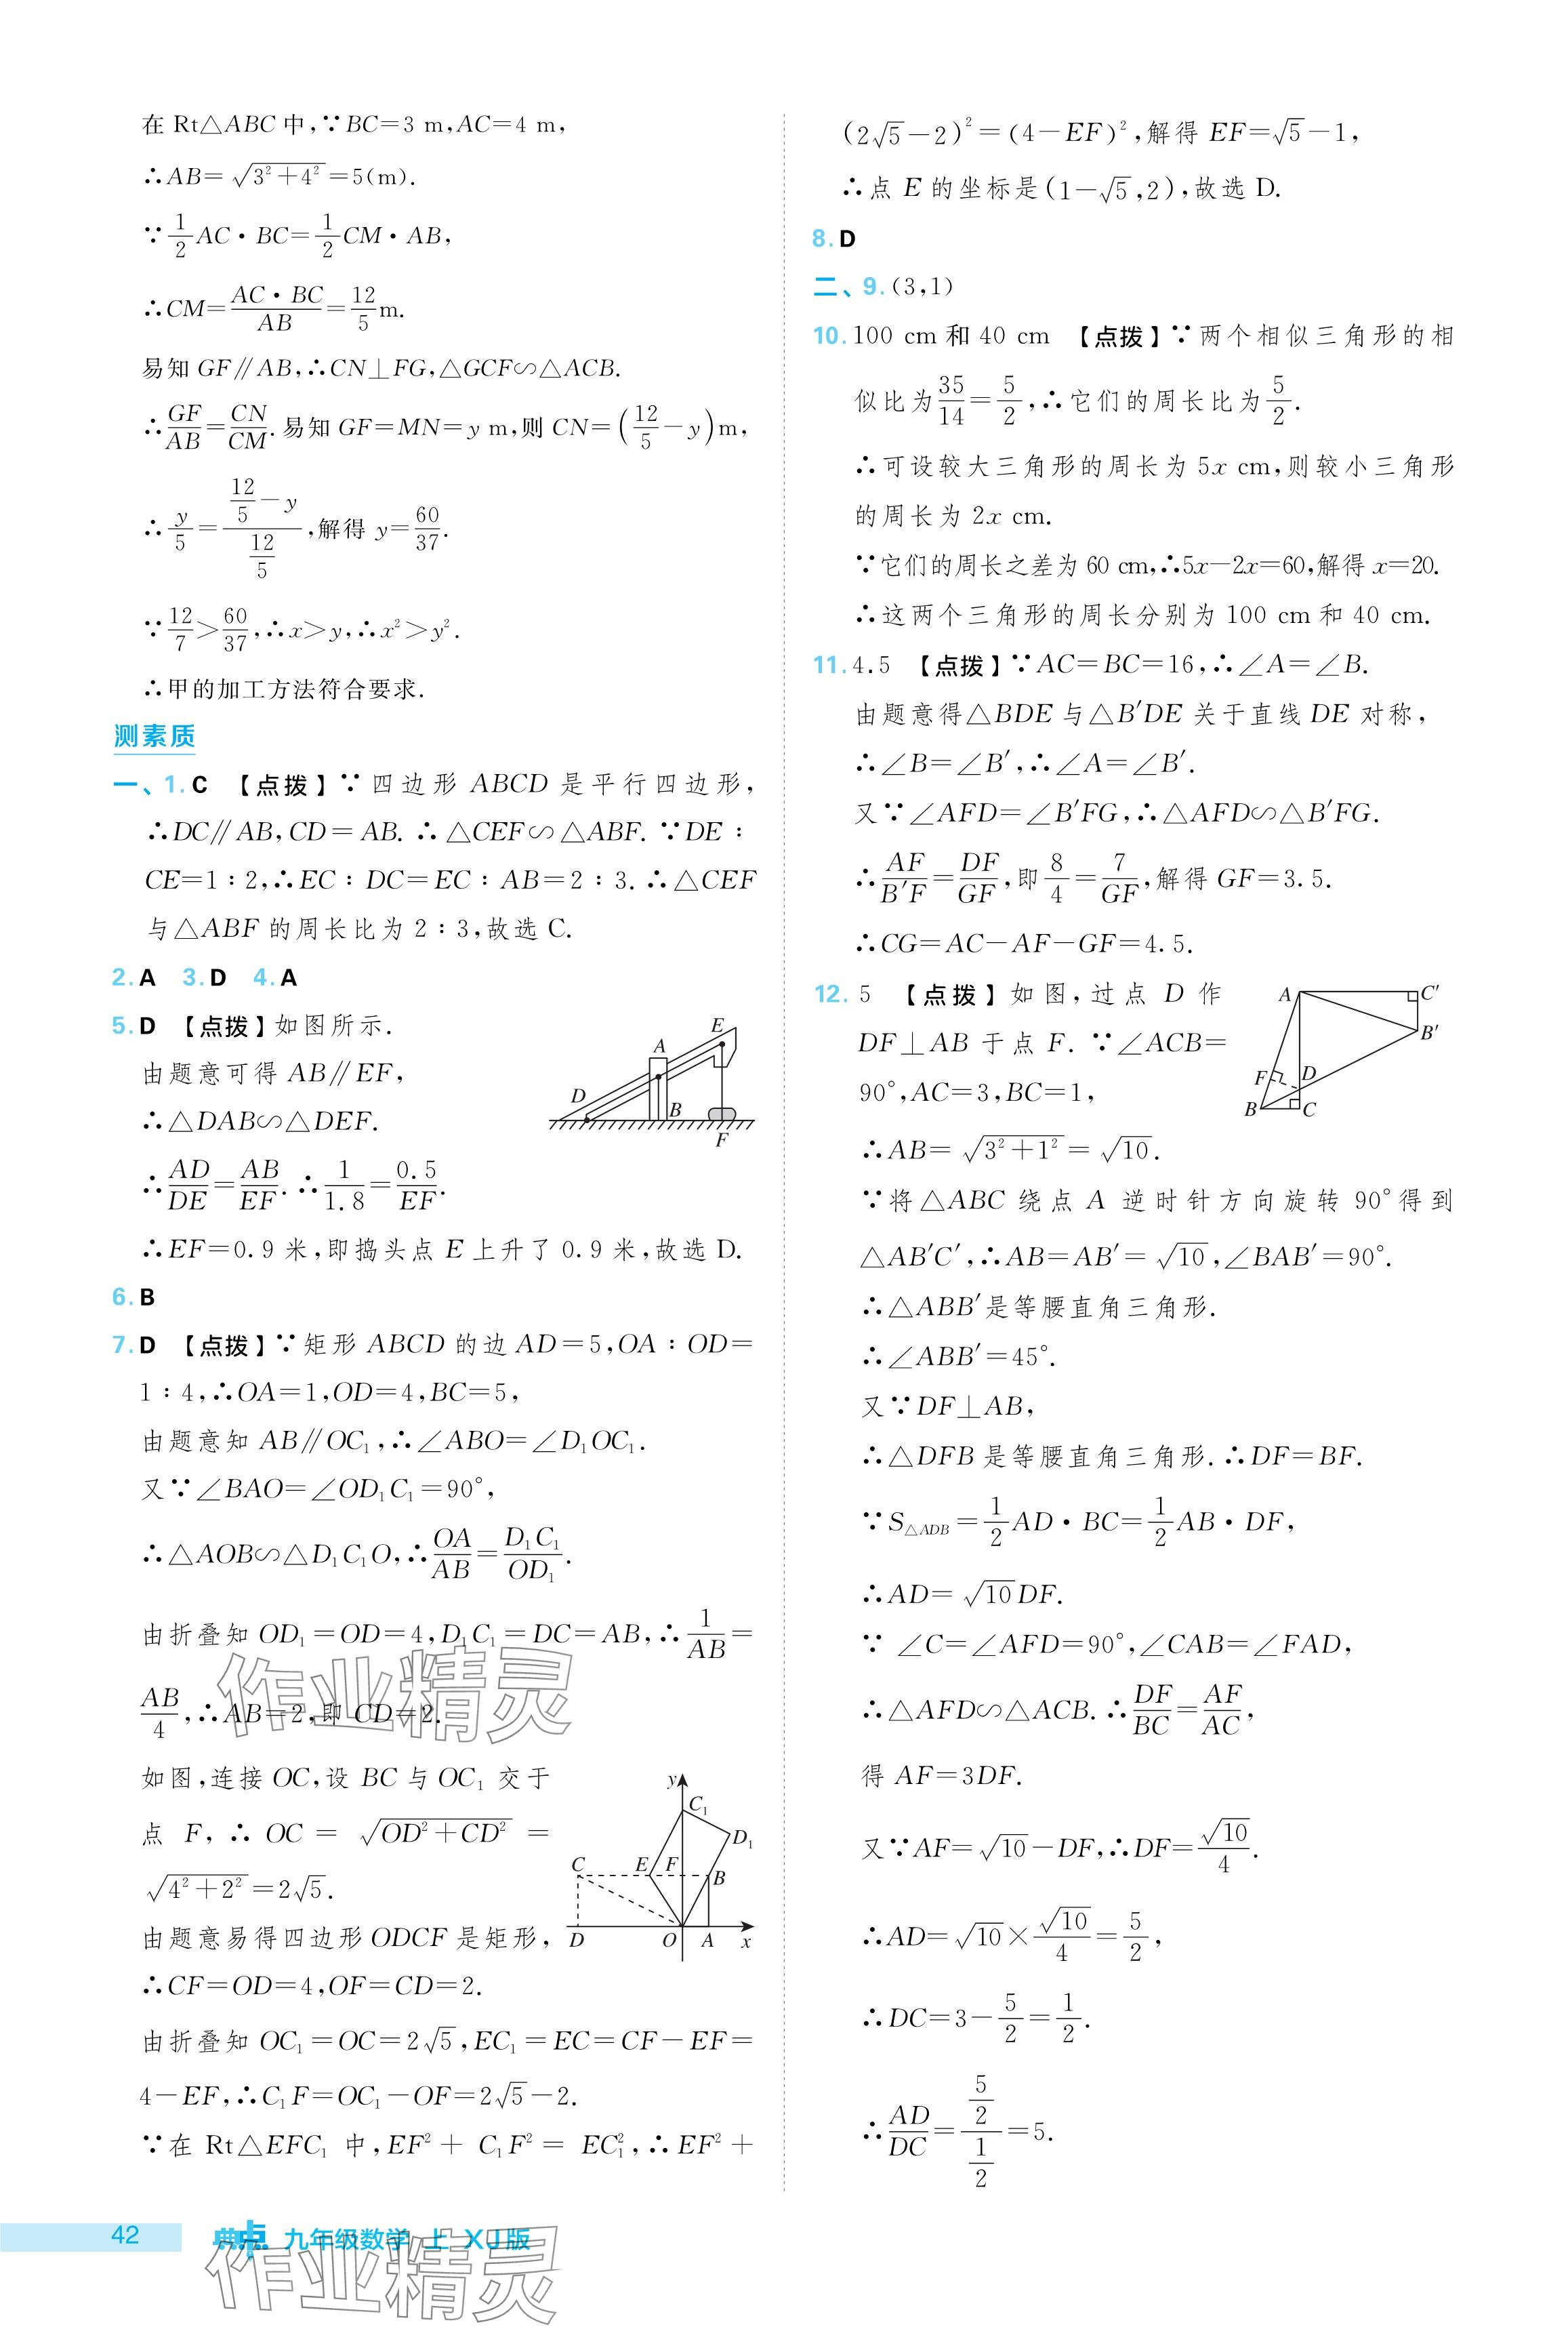 在 Rt△ABC 中,∵BC=3 m,AC=4 m,
∴AB=√(3²+4²)=5(m).
∵1/2 AC·BC=1/2 CM·AB,
∴CM=(AC·BC)/AB=12/5 m.
易知 GF∥AB,∴CN⊥FG,△GCF∽△ACB.
∴GF/AB=CN/CM.易知 GF=MN=y m,则 CN=(12/5-y)m,
∴y/5=(12/5-y)/(12/5),解得 y=60/37.
∵12/7>60/37,∴x>y,∴x²>y².
∴甲的加工方法符合要求.
测素质
一、1.C 【点拨】∵四边形 ABCD 是平行四边形,
∴DC∥AB,CD=AB.∴△CEF∽△ABF.∵DE∶
CE=1∶2,∴EC∶DC=EC∶AB=2∶3.∴△CEF
与△ABF 的周长比为 2∶3,故选 C.
2.A 3.D 4.A
5.D 【点拨】如图所示.
由题意可得 AB∥EF,
∴△DAB∽△DEF.
∴AD/DE=AB/EF.∴1/1.8=0.5/EF.
∴EF=0.9 米,即捣头点 E 上升了 0.9 米,故选 D.
A
E
D
B
F
6.B
7.D 【点拨】∵矩形 ABCD 的边 AD=5,OA∶OD=
1∶4,∴OA=1,OD=4,BC=5,
由题意知 AB∥OC₁,∴∠ABO=∠D₁OC₁.
又∵∠BAO=∠OD₁C₁=90°,
∴△AOB∽△D₁C₁O,∴OA/AB=D₁C₁/OD₁.
由折叠知 OD₁=OD=4,D₁C₁=DC=AB,∴1/AB=
AB/4,∴AB=2,即 CD=2.
如图,连接 OC,设 BC 与 OC₁ 交于
点 F,∴OC=√(OD²+CD²)=
√(4²+2²)=2√5.
由题意易得四边形 ODCF 是矩形,
y
C₁
D₁
C
E
F
B
D
O
A
x
∴CF=OD=4,OF=CD=2.
由折叠知 OC₁=OC=2√5,EC₁=EC=CF-EF=
4-EF,∴C₁F=OC₁-OF=2√5-2.
∵在 Rt△EFC₁ 中,EF²+C₁F²=EC₁²,∴EF²+
(2√5-2)²=(4-EF)²,解得 EF=√5-1,
∴点 E 的坐标是(1-√5,2),故选 D.
8.D
二、9.(3,1)
10.100 cm 和 40 cm 【点拨】∵两个相似三角形的相
似比为35/14=5/2,∴它们的周长比为5/2.
∴可设较大三角形的周长为 5x cm,则较小三角形
的周长为 2x cm.
∵它们的周长之差为 60 cm,∴5x-2x=60,解得 x=20.
∴这两个三角形的周长分别为 100 cm 和 40 cm.
11.4.5 【点拨】∵AC=BC=16,∴∠A=∠B.
由题意得△BDE 与△B′DE 关于直线 DE 对称,
∴∠B=∠B′,∴∠A=∠B′.
又∵∠AFD=∠B′FG,∴△AFD∽△B′FG.
∴AF/B′F=DF/GF,即8/4=7/GF,解得 GF=3.5.
∴CG=AC-AF-GF=4.5.
12.5 【点拨】如图,过点 D 作
DF⊥AB 于点 F.∵∠ACB=
90°,AC=3,BC=1,
A
C′
B′
F
D
B
C
∴AB=√(3²+1²)=√10.
∵将△ABC 绕点 A 逆时针方向旋转 90°得到
△AB′C′,∴AB=AB′=√10,∠BAB′=90°.
∴△ABB′是等腰直角三角形.
∴∠ABB′=45°.
又∵DF⊥AB,
∴△DFB 是等腰直角三角形.∴DF=BF.
∵S△ADB=1/2 AD·BC=1/2 AB·DF,
∴AD=√10DF.
∵∠C=∠AFD=90°,∠CAB=∠FAD,
∴△AFD∽△ACB.∴DF/BC=AF/AC,
得 AF=3DF.
又∵AF=√10-DF,∴DF=√10/4.
∴AD=√10×√10/4=5/2,
∴DC=3-5/2=1/2.
∴AD/DC=(5/2)/(1/2)=5.
作业精灵
42 典点 九年级数学 上 XJ版
作业精灵